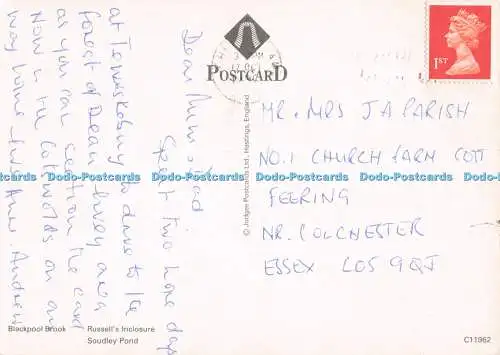 Dear Mum & Dad
Spent two lone days
at Tewkesbury & drive to the
Forest of Dean - lovely area
as you can see from the card
Now in the Cotswolds on our
way home - love Ann & Andrew
POSTCARD
1ST
MR & MRS J A PARISH
NO. 1 CHURCH FARM COTT
FEERING
NR. COLCHESTER
ESSEX CO5 9QJ
© Judges Postcards Ltd., Hastings, England
Dodo-Postcards Dodo-Postcards Dodo-Postcards Dodo-Postcards Dodo-Postcards
Blackpool Brook Russell's Inclosure
Soudley Pond
C11962